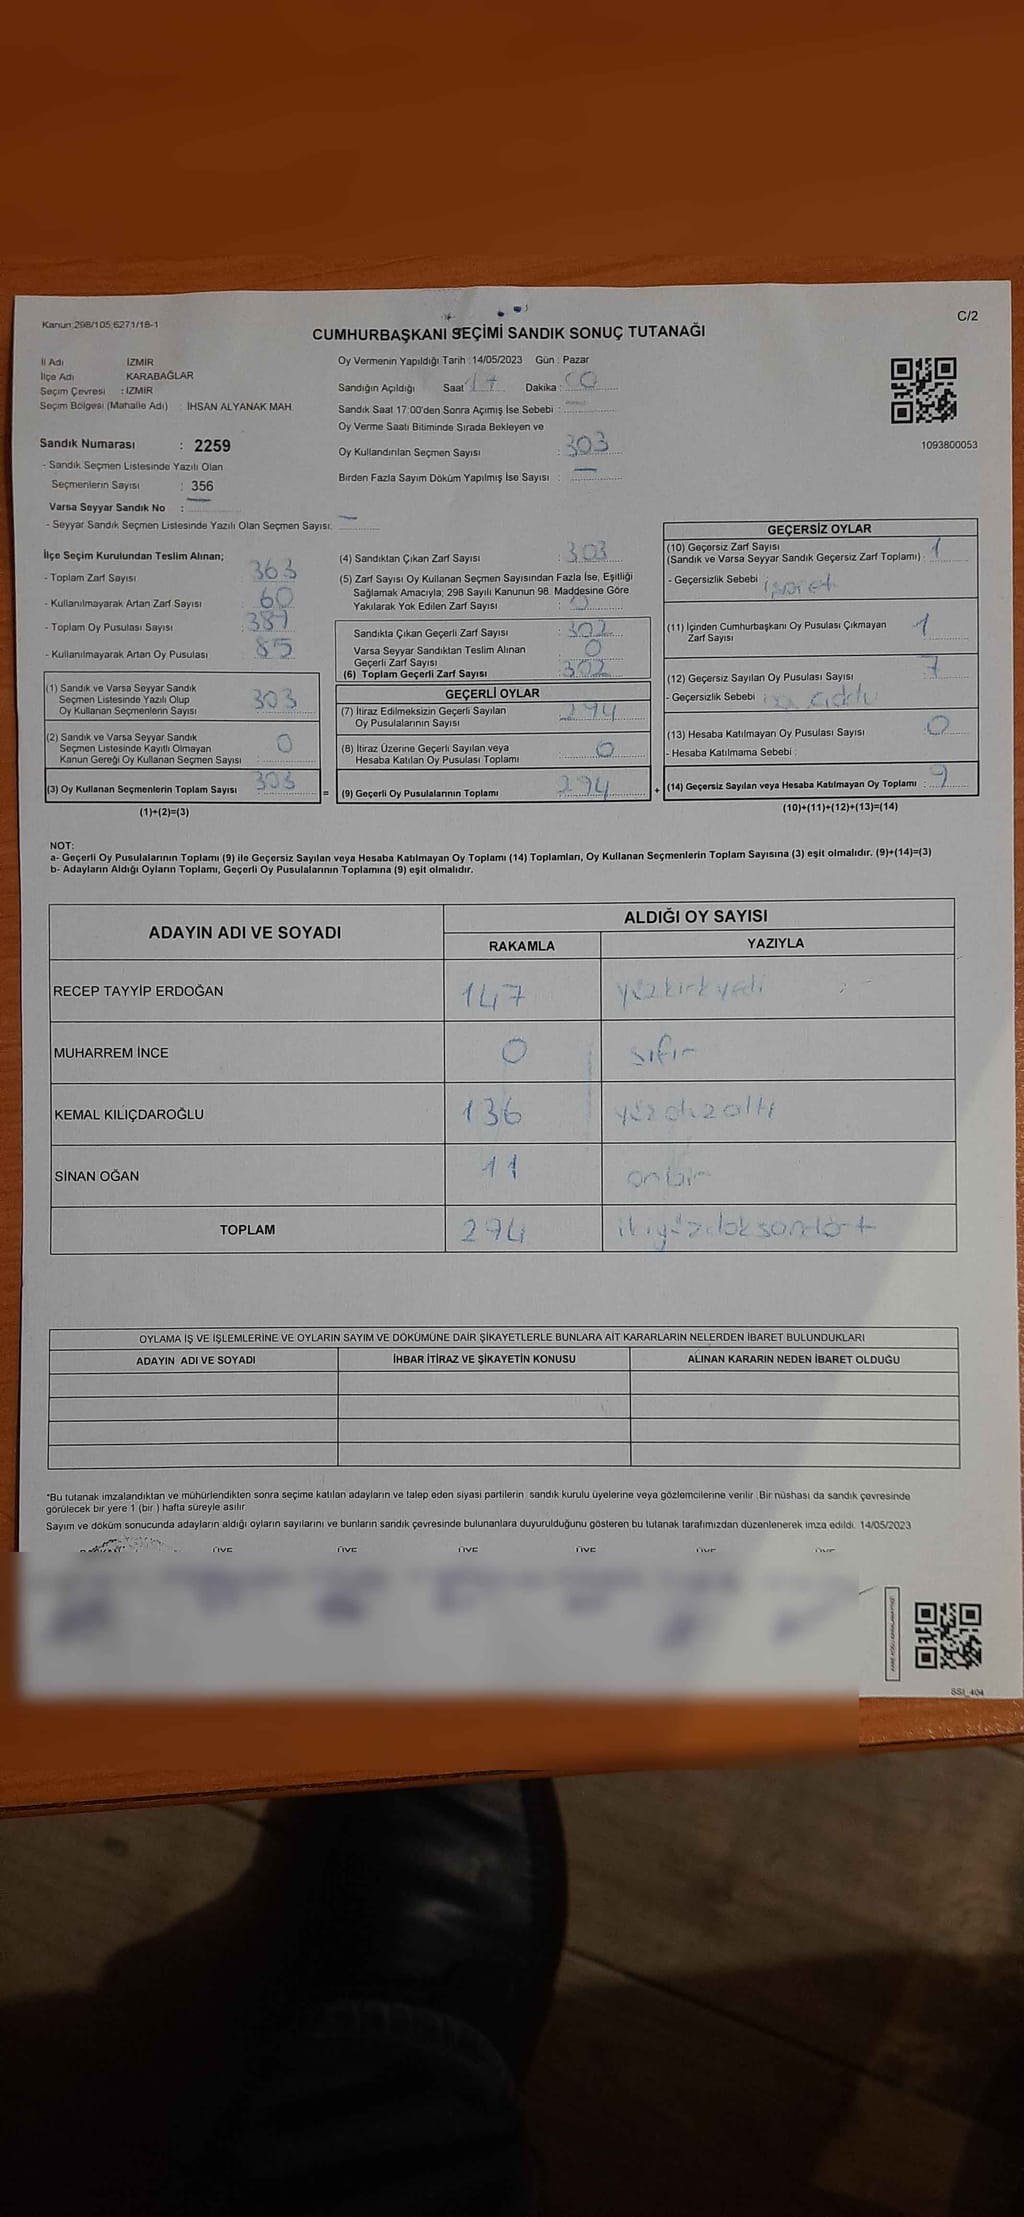 Kanun:298/105;6271/18-1
C/2
CUMHURBAŞKANI SEÇİMİ SANDIK SONUÇ TUTANAĞI
İl Adı İZMİR
İlçe Adı KARABAĞLAR
Seçim Çevresi : İZMİR
Seçim Bölgesi (Mahalle Adı) : İHSAN ALYANAK MAH.
Sandık Numarası : 2259
- Sandık Seçmen Listesinde Yazılı Olan
Seçmenlerin Sayısı : 356
Varsa Seyyar Sandık No : —
- Seyyar Sandık Seçmen Listesinde Yazılı Olan Seçmen Sayısı: —
Oy Vermenin Yapıldığı Tarih : 14/05/2023 Gün : Pazar
Sandığın Açıldığı Saat 17 Dakika : 00
Sandık Saat 17:00'den Sonra Açımış İse Sebebi :
Oy Verme Saati Bitiminde Sırada Bekleyen ve
Oy Kullandırılan Seçmen Sayısı : 303
Birden Fazla Sayım Döküm Yapılmış İse Sayısı : —
1093800053
İlçe Seçim Kurulundan Teslim Alınan;
- Toplam Zarf Sayısı : 363
- Kullanılmayarak Artan Zarf Sayısı : 60
- Toplam Oy Pusulası Sayısı : 387
- Kullanılmayarak Artan Oy Pusulası : 85
(1) Sandık ve Varsa Seyyar Sandık
Seçmen Listesinde Yazılı Olup
Oy Kullanan Seçmenlerin Sayısı 303
(2) Sandık ve Varsa Seyyar Sandık
Seçmen Listesinde Kayıtlı Olmayan
Kanun Gereği Oy Kullanan Seçmen Sayısı : 0
(3) Oy Kullanan Seçmenlerin Toplam Sayısı 303
(1)+(2)=(3)
=
(4) Sandıktan Çıkan Zarf Sayısı : 303
(5) Zarf Sayısı Oy Kullanan Seçmen Sayısından Fazla İse, Eşitliği
Sağlamak Amacıyla; 298 Sayılı Kanunun 98. Maddesine Göre
Yakılarak Yok Edilen Zarf Sayısı : 0
Sandıkta Çıkan Geçerli Zarf Sayısı : 302
Varsa Seyyar Sandıktan Teslim Alınan
Geçerli Zarf Sayısı : 0
(6) Toplam Geçerli Zarf Sayısı : 302
GEÇERLİ OYLAR
(7) İtiraz Edilmeksizin Geçerli Sayılan
Oy Pusulalarının Sayısı : 294
(8) İtiraz Üzerine Geçerli Sayılan veya
Hesaba Katılan Oy Pusulası Toplamı : 0
(9) Geçerli Oy Pusulalarının Toplamı 294
+
GEÇERSİZ OYLAR
(10) Geçersiz Zarf Sayısı
(Sandık ve Varsa Seyyar Sandık Geçersiz Zarf Toplamı) : 1
- Geçersizlik Sebebi işaret
(11) İçinden Cumhurbaşkanı Oy Pusulası Çıkmayan
Zarf Sayısı 1
(12) Geçersiz Sayılan Oy Pusulası Sayısı 7
- Geçersizlik Sebebi
(13) Hesaba Katılmayan Oy Pusulası Sayısı : 0
- Hesaba Katılmama Sebebi :
(14) Geçersiz Sayılan veya Hesaba Katılmayan Oy Toplamı : 9
(10)+(11)+(12)+(13)=(14)
NOT:
a- Geçerli Oy Pusulalarının Toplamı (9) ile Geçersiz Sayılan veya Hesaba Katılmayan Oy Toplamı (14) Toplamları, Oy Kullanan Seçmenlerin Toplam Sayısına (3) eşit olmalıdır. (9)+(14)=(3)
b- Adayların Aldığı Oyların Toplamı, Geçerli Oy Pusulalarının Toplamına (9) eşit olmalıdır.
ADAYIN ADI VE SOYADI
ALDIĞI OY SAYISI
RAKAMLA YAZIYLA
RECEP TAYYİP ERDOĞAN 147 yüzkırkyedi
MUHARREM İNCE 0 sıfır
KEMAL KILIÇDAROĞLU 136 yüzotuzaltı
SİNAN OĞAN 11 onbir
TOPLAM 294 ikiyüzdoksandört
OYLAMA İŞ VE İŞLEMLERİNE VE OYLARIN SAYIM VE DÖKÜMÜNE DAİR ŞİKAYETLERLE BUNLARA AİT KARARLARIN NELERDEN İBARET BULUNDUKLARI
ADAYIN ADI VE SOYADI İHBAR İTİRAZ VE ŞİKAYETİN KONUSU ALINAN KARARIN NEDEN İBARET OLDUĞU
*Bu tutanak imzalandıktan ve mühürlendikten sonra seçime katılan adayların ve talep eden siyasi partilerin sandık kurulu üyelerine veya gözlemcilerine verilir. Bir nüshası da sandık çevresinde
görülecek bir yere 1 (bir ) hafta süreyle asılır.
Sayım ve döküm sonucunda adayların aldığı oyların sayılarını ve bunların sandık çevresinde bulunanlara duyurulduğunu gösteren bu tutanak tarafımızdan düzenlenerek imza edildi. 14/05/2023
ÜYE ÜYE ÜYE ÜYE ÜYE ÜYE
SSI_404